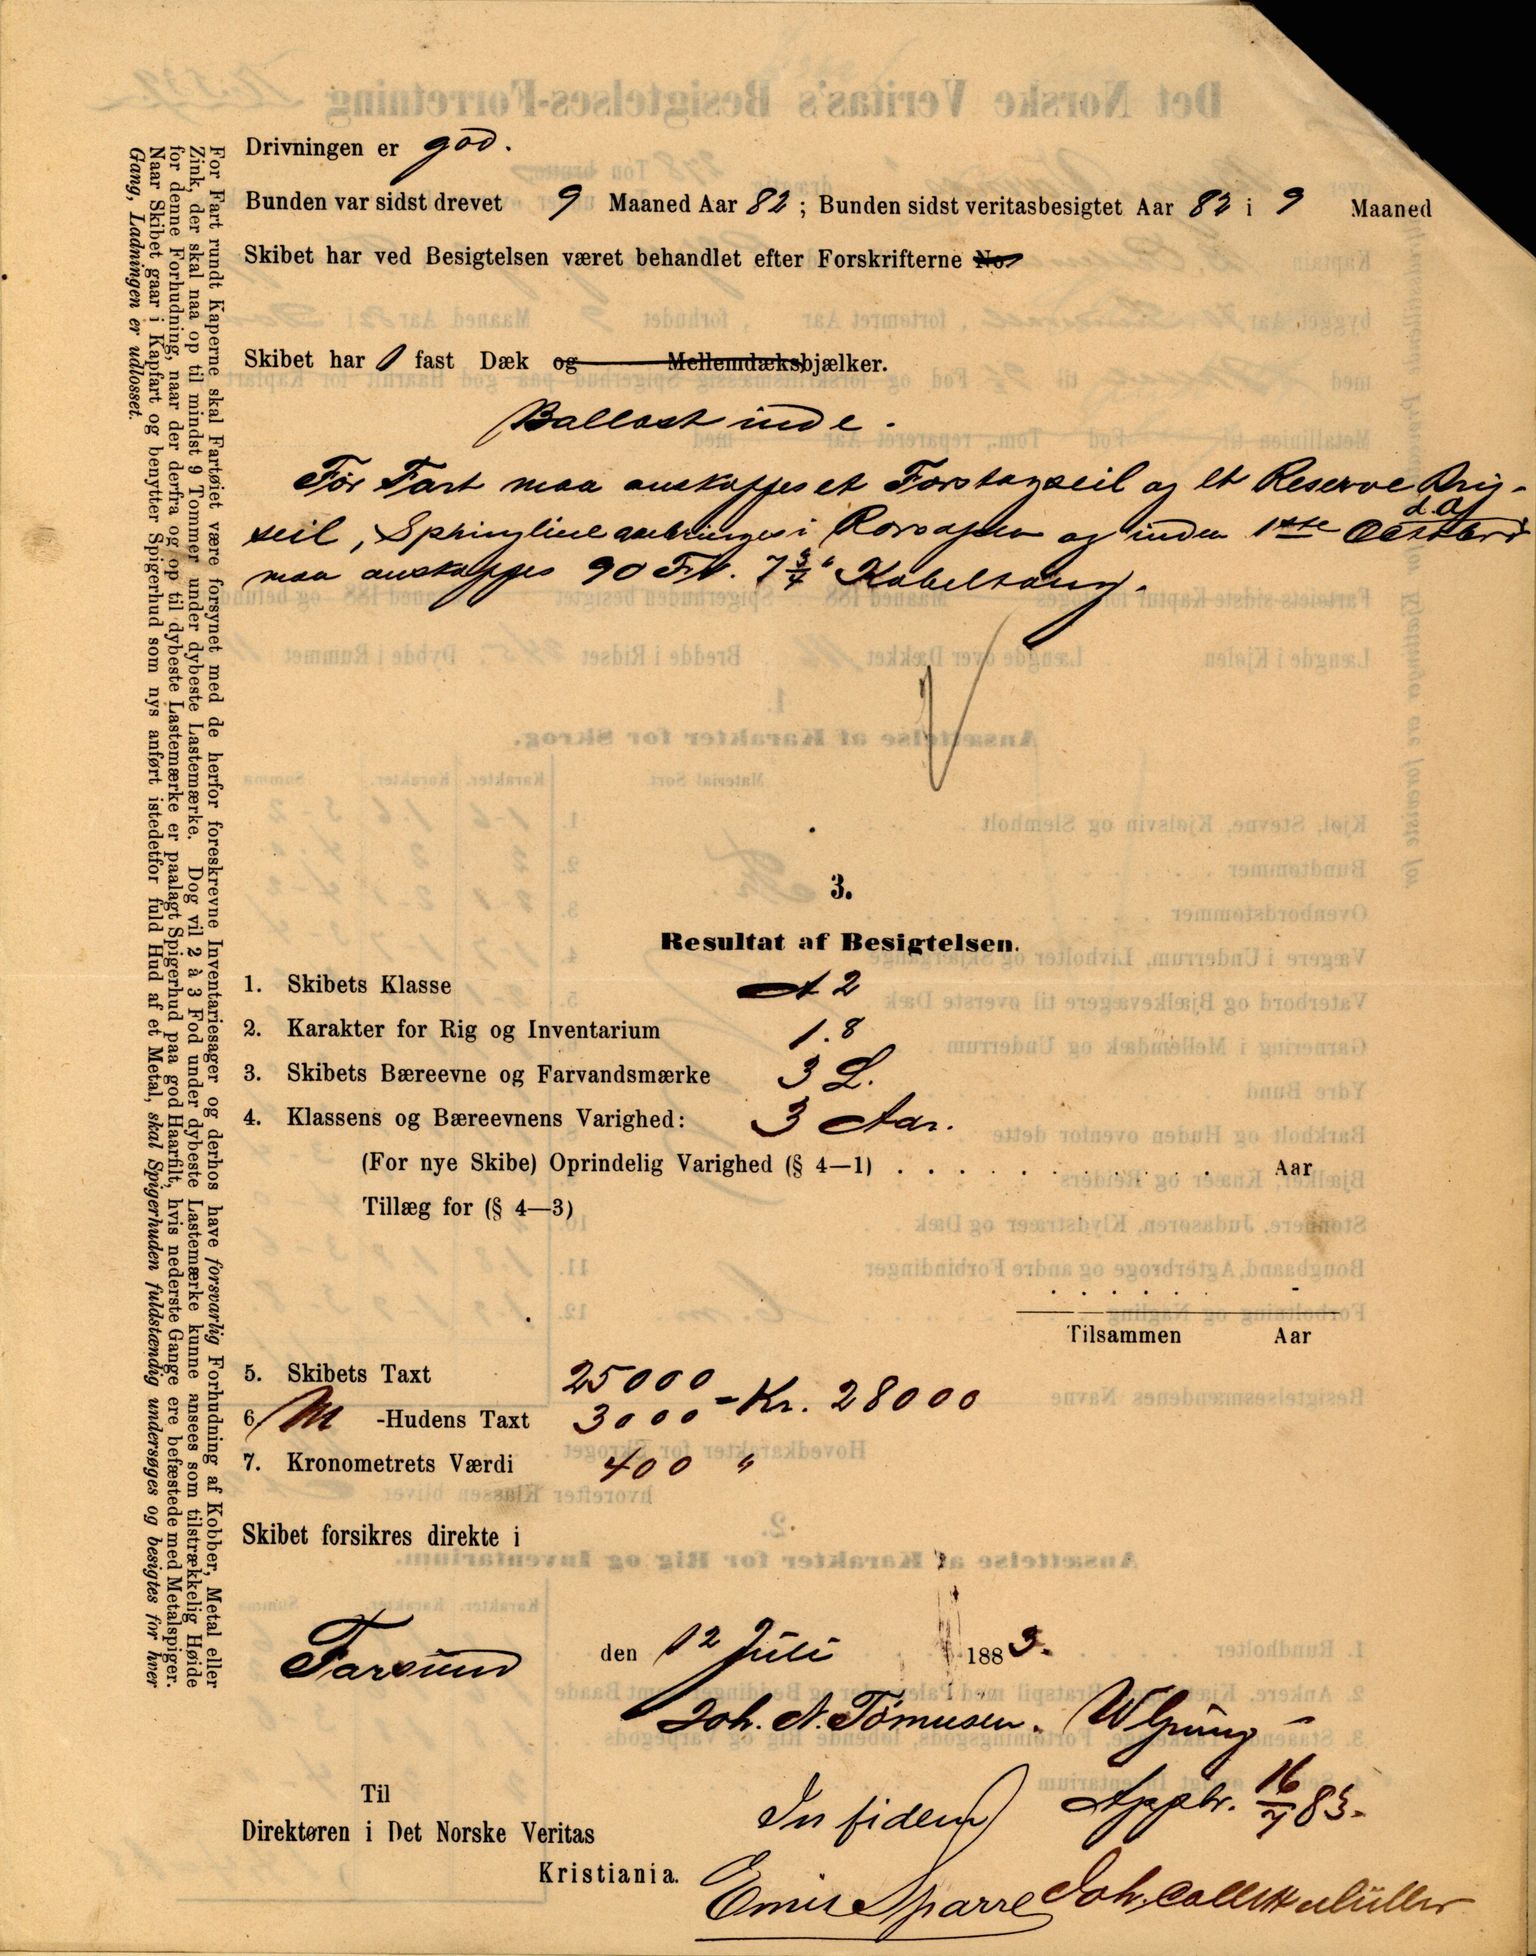 Drivningen er god.
Bunden var sidst drevet 9 Maaned Aar 82; Bunden sidst veritasbesigtet Aar 82 i 9 Maaned
Skibet har ved Besigtelsen været behandlet efter Forskrifterne No.
Skibet har 1 fast Dæk og Mellemdæksbjælker.
Ballast inde.
Før Fart maa anskaffes et Forstagseil og et Reserve Brig-
seil, Springline anbringes i og inden 1ste Octbr d. A.
maa anskaffes 90 Fv. 7 3/4" Kabeltaug.
3.
Resultat af Besigtelsen.
1. Skibets Klasse A 2
2. Karakter for Rig og Inventarium 1.8
3. Skibets Bæreevne og Farvandsmærke 3 L.
4. Klassens og Bæreevnens Varighed: 3 Aar.
(For nye Skibe) Oprindelig Varighed (§ 4—1) . . . . . . . . . . . Aar
Tillæg for (§ 4—3)
Tilsammen Aar
5. Skibets Taxt 25000
6 M -Hudens Taxt 3000 - Kr. 28000
7. Kronometrets Værdi 400 "
Skibet forsikres direkte i
Farsund den 12 Juli 1883.
Joh. A.
In fidem Appbr. 16/7 83.
Til
Direktøren i Det Norske Veritas
Kristiania.
Emil Sparre Joh. Collett Müller
For Fart rundt Kaperne skal Fartøiet være forsynet med de herfor foreskrevne Inventariesager og derhos have forsvarlig Forhudning af Kobber, Metal eller
Zink, der skal naa op til mindst 9 Tommer under dybeste Lastemærke. Dog vil 2 à 3 Fod under dybeste Lastemærke kunne ansees som tilstrækkelig Høide
for denne Forhudning, naar der derfra og op til dybeste Lastemærke er paalagt Spigerhud paa god Haarfilt, hvis nederste Gange ere befæstede med Metalspiger.
Naar Skibet gaar i Kapfart og benytter Spigerhud som nys anført istedetfor fuld Hud af et Metal, skal Spigerhuden fuldstændig undersøges og besigtes for hver
Gang, Ladningen er udlosset.